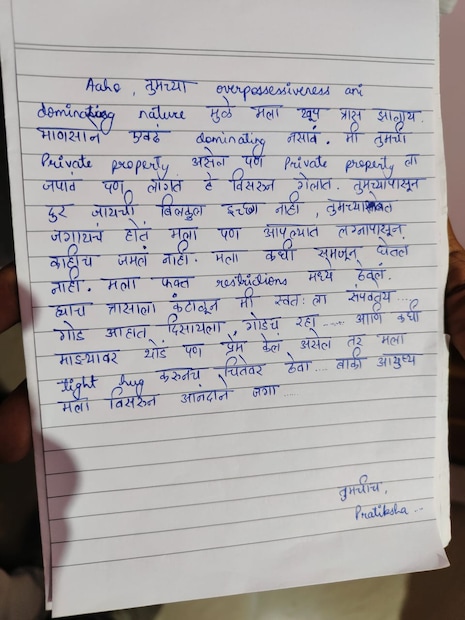 Aaho, तुमच्या overpossessiveness ani
dominating nature मुळे मला खूप त्रास झालाय.
माणसाने एवढं dominating नसावं. मी तुमची
Private property असेल पण Private property ला
जपावं पण लागतं हे विसरून गेलात. तुमच्यापासून
दूर जायची बिलकुल इच्छा नाही, तुमच्यासोबत
जगायचं होतं मला पण आपल्यात लग्नापासून
काहीच जमलं नाही. मला कधी समजून घेतलं
नाही. मला फक्त restrictions मध्ये ठेवलं.
ह्याच त्रासाला कंटाळून मी स्वतः ला संपवतेय ...
गोड आहात दिसायला, गोडच रहा .... आणि कधी
माझ्यावर थोडं पण प्रेम केलं असेल तर मला
tight hug करूनच चितेवर ठेवा .... बाकी आयुष्य
मला विसरून आनंदाने जगा .....
तुमचीच,
Pratiksha ...